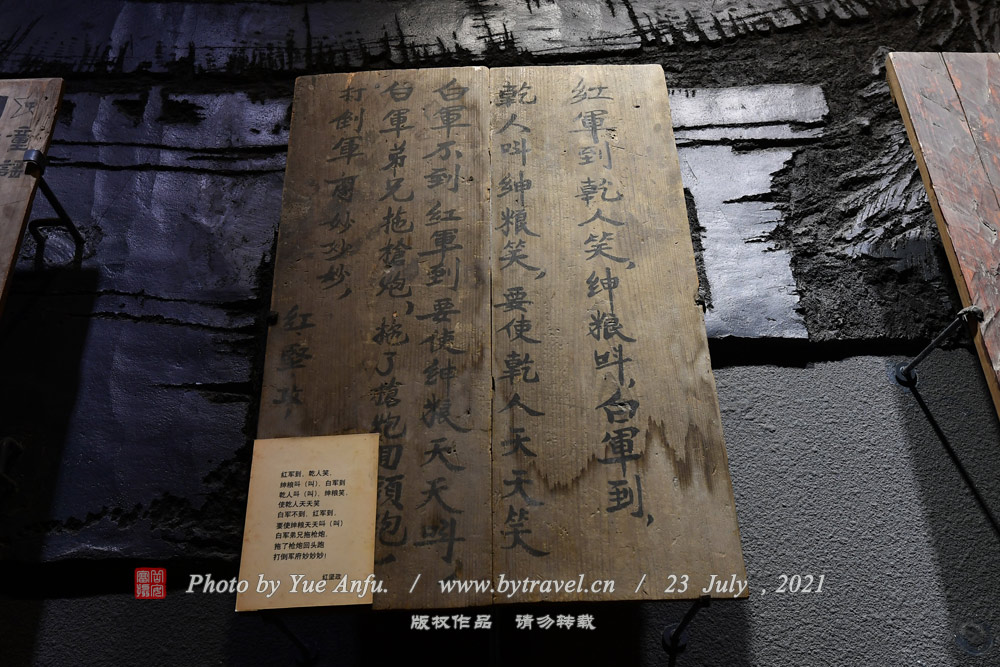 紅軍到乾人笑,紳粮呌,白軍到,
乾人呌紳粮笑,要使乾人天天笑
白軍不到紅軍到要使紳粮天天呌,
白軍弟兄拖槍炮,拖了槍炮囘頭跑,
打倒軍
妙妙妙,
红坚
童謡
红军到、乾人笑、
绅粮呌(叫)、白军到
乾人呌(叫)、绅粮笑、
使乾人天天笑
白军不到、红军到、
要使绅粮天天呌(叫)
白军弟兄拖枪炮、
拖了枪炮回头跑
打倒军府妙妙妙!
Photo by Yue Anfu. / www.bytravel.cn / 23 July , 2021
版权作品 请勿转载